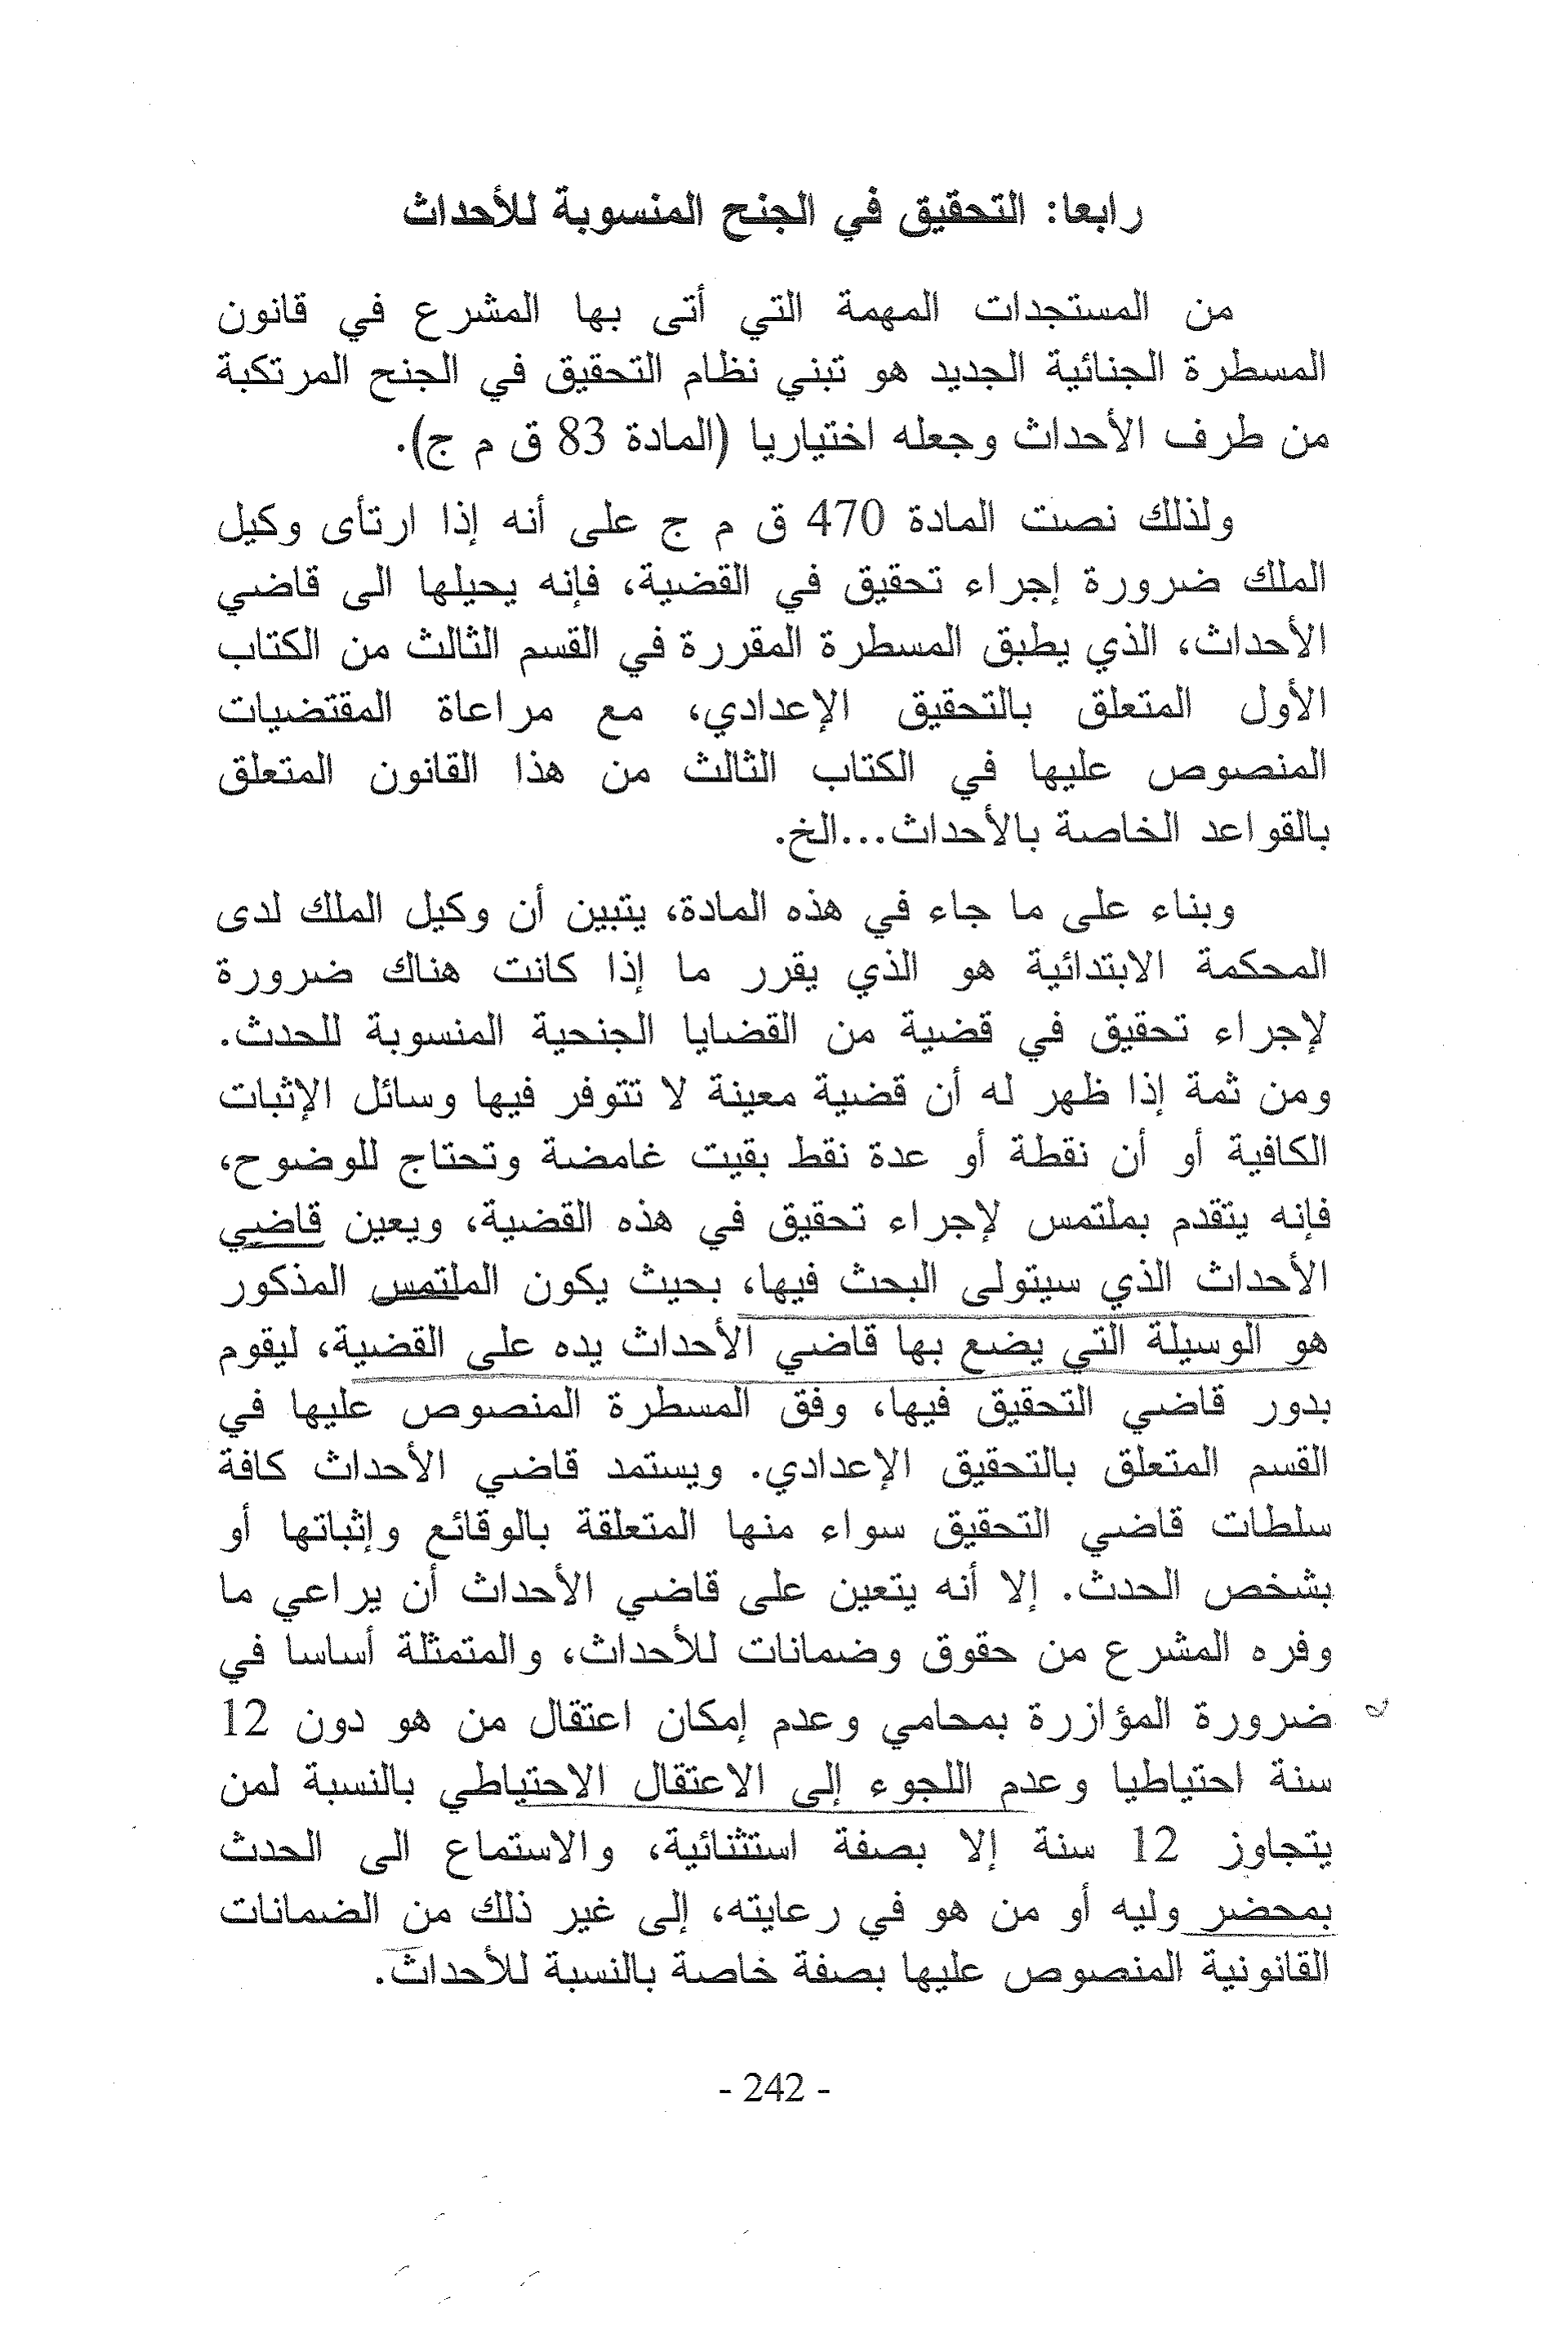 رابعا: التحقيق في الجنح المنسوبة للأحداث
من المستجدات المهمة التي أتى بها المشرع في قانون
المسطرة الجنائية الجديد هو تبني نظام التحقيق في الجنح المرتكبة
من طرف الأحداث وجعله اختياريا (المادة 83 ق م ج).
ولذلك نصت المادة 470 ق م ج على أنه إذا ارتأى وكيل
الملك ضرورة إجراء تحقيق في القضية، فإنه يحيلها الى قاضي
الأحداث، الذي يطبق المسطرة المقررة في القسم الثالث من الكتاب
الأول المتعلق بالتحقيق الإعدادي، مع مراعاة المقتضيات
المنصوص عليها في الكتاب الثالث من هذا القانون المتعلق
بالقواعد الخاصة بالأحداث...الخ.
وبناء على ما جاء في هذه المادة، يتبين أن وكيل الملك لدى
المحكمة الابتدائية هو الذي يقرر ما إذا كانت هناك ضرورة
لإجراء تحقيق في قضية من القضايا الجنحية المنسوبة للحدث.
ومن ثمة إذا ظهر له أن قضية معينة لا تتوفر فيها وسائل الإثبات
الكافية أو أن نقطة أو عدة نقط بقيت غامضة وتحتاج للوضوح،
فإنه يتقدم بملتمس لإجراء تحقيق في هذه القضية، ويعين قاضي
الأحداث الذي سيتولى البحث فيها، بحيث يكون الملتمس المذكور
هو الوسيلة التي يضع بها قاضي الأحداث يده على القضية، ليقوم
بدور قاضي التحقيق فيها، وفق المسطرة المنصوص عليها في
القسم المتعلق بالتحقيق الإعدادي. ويستمد قاضي الأحداث كافة
سلطات قاضي التحقيق سواء منها المتعلقة بالوقائع وإثباتها أو
بشخص الحدث. إلا أنه يتعين على قاضي الأحداث أن يراعي ما
وفره المشرع من حقوق وضمانات للأحداث، والمتمثلة أساسا في
ضرورة المؤازرة بمحامي وعدم إمكان اعتقال من هو دون 12
سنة احتياطيا وعدم اللجوء إلى الاعتقال الاحتياطي بالنسبة لمن
يتجاوز 12 سنة إلا بصفة استثنائية، والاستماع الى الحدث
بمحضر وليه أو من هو في رعايته، إلى غير ذلك من الضمانات
القانونية المنصوص عليها بصفة خاصة بالنسبة للأحداث.
- 242 -